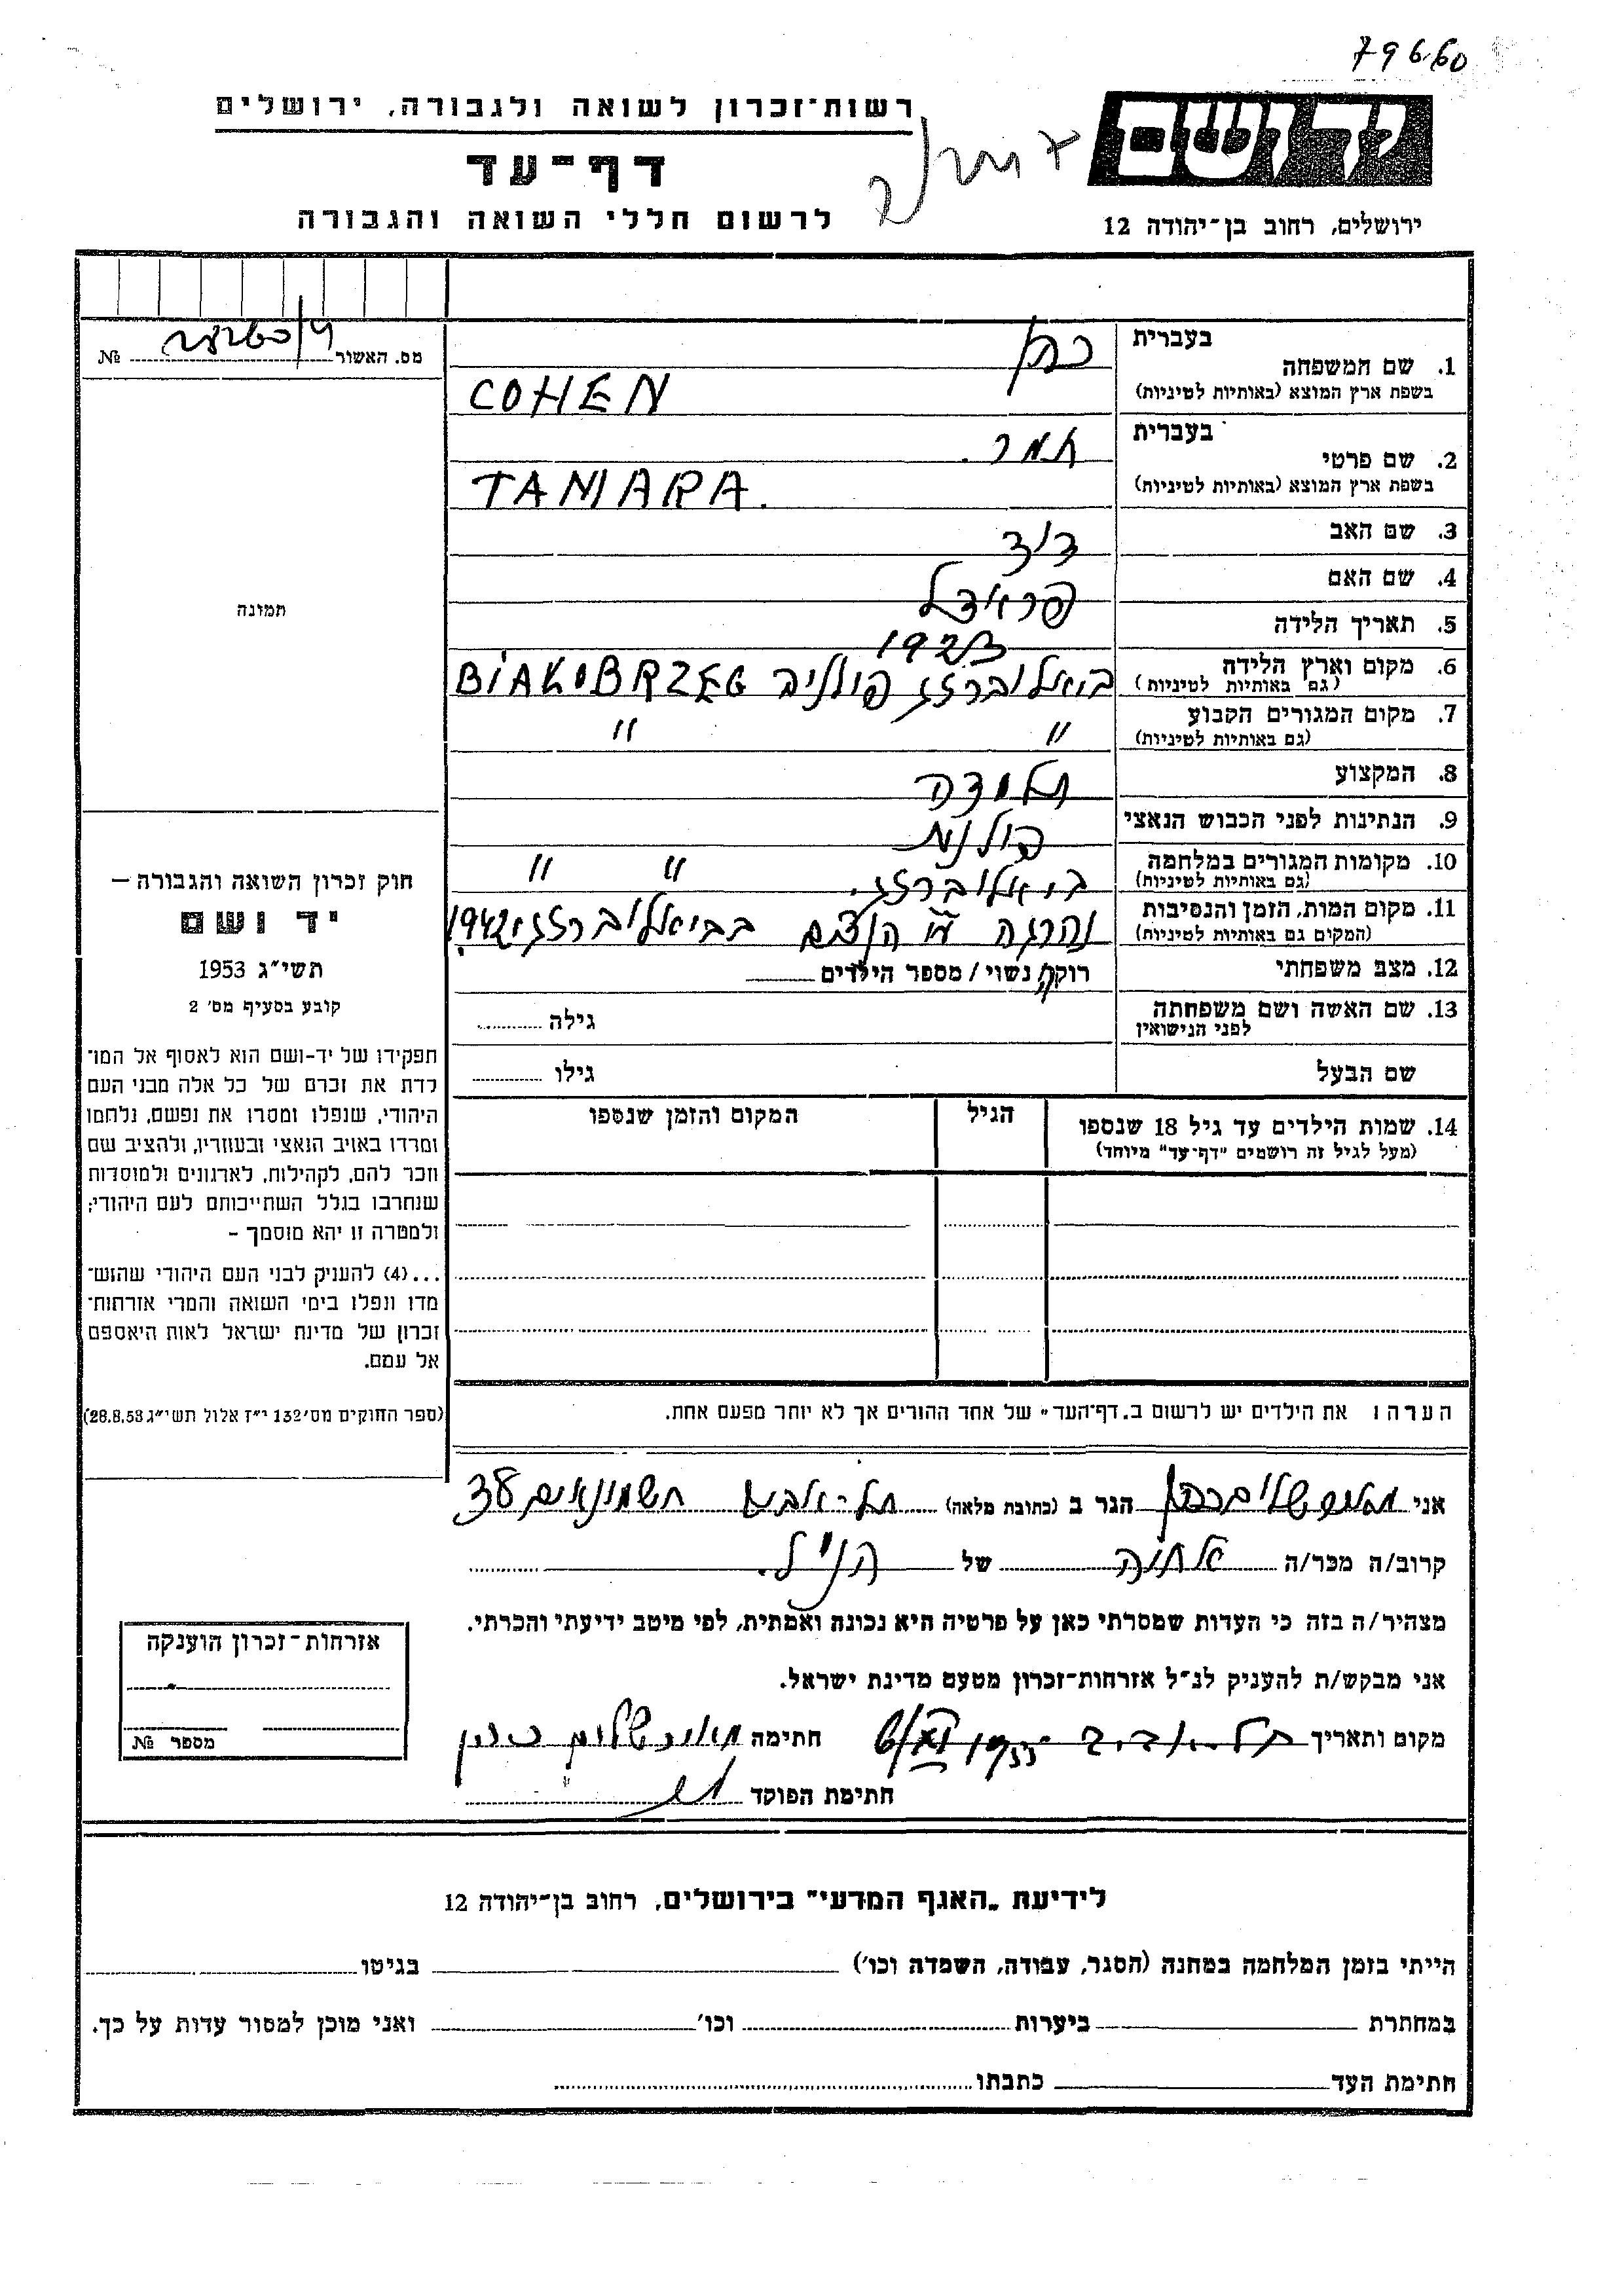 79660
רשות־זכרון לשואה ולגבורה, ירושלים
יד ושם
דף־עד
לרשום חללי השואה והגבורה
ירושלים, רחוב בן־יהודה 12
מס. האשור № 
בעברית
1. שם המשפחה כהן
בשפת ארץ המוצא (באותיות לטיניות) COHEN
בעברית
2. שם פרטי תמר.
בשפת ארץ המוצא (באותיות לטיניות) TAMARA.
3. שם האב דוד
4. שם האם פריידל
5. תאריך הלידה 1923
6. מקום וארץ הלידה ביאלוברזג פולניה BIAKOBRZEG
(גם באותיות לטיניות)
7. מקום המגורים הקבוע " "
(גם באותיות לטיניות)
8. המקצוע תלמידה
9. הנתינות לפני הכבוש הנאצי פולנית
10. מקומות המגורים במלחמה ביאלוברזג. " "
(גם באותיות לטיניות)
11. מקום המות, הזמן והנסיבות נהרגה ע"י הנאצים בביאלוברזג 1942
(המקום גם באותיות לטיניות)
12. מצב משפחתי רוק/ה נשוי / מספר הילדים
13. שם האשה ושם משפחתה
לפני הנישואין
גילה
שם הבעל גילו
14. שמות הילדים עד גיל 18 שנספו הגיל המקום והזמן שנספו
(מעל לגיל זה רושמים "דף־עד" מיוחד)
הערה: את הילדים יש לרשום ב„דף־העד" של אחד ההורים אך לא יותר מפעם אחת.
תמונה
חוק זכרון השואה והגבורה –
יד ושם
תשי״ג 1953
קובע בסעיף מס' 2
תפקידו של יד-ושם הוא לאסוף אל המו־
לדת את זכרם של כל אלה מבני העם
היהודי, שנפלו ומסרו את נפשם, נלחמו
ומרדו באויב הנאצי ובעוזריו, ולהציב שם
וזכר להם, לקהילות, לארגונים ולמוסדות
שנחרבו בגלל השתייכותם לעם היהודי;
ולמטרה זו יהא מוסמך –
...(4) להעניק לבני העם היהודי שהוש־
מדו ונפלו בימי השואה והמרי אזרחות־
זכרון של מדינת ישראל לאות היאספם
אל עמם.
(ספר החוקים מס' 132 י״ז אלול תשי״ג 28.8.53)
אני שלום כהן הגר ב (כתובת מלאה) תל-אביב חשמונאים 38
קרוב/ה מכר/ה אחות של הנ״ל.
מצהיר/ה בזה כי העדות שמסרתי כאן על פרטיה היא נכונה ואמתית, לפי מיטב ידיעתי והכרתי.
אני מבקש/ת להעניק לנ״ל אזרחות־זכרון מטעם מדינת ישראל.
מקום ותאריך תל-אביב 1955 חתימה שלום כהן
חתימת הפוקד
אזרחות־זכרון הוענקה
מספר №
לידיעת „האגף המדעי" בירושלים, רחוב בן־יהודה 12
הייתי בזמן המלחמה במחנה (הסגר, עבודה, השמדה וכו') בגיטו
במחתרת ביערות וכו' ואני מוכן למסור עדות על כך.
חתימת העד כתבתו